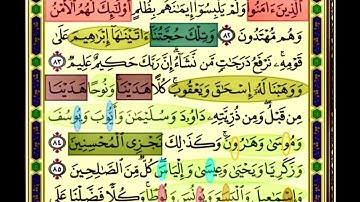 ٱلَّذِينَ ءَامَنُوا۟ وَلَمْ يَلْبِسُوٓا۟ إِيمَـٰنَهُم بِظُلْمٍ أُو۟لَـٰٓئِكَ لَهُمُ ٱلْأَمْنُ
وَهُم مُّهْتَدُونَ ٨٢ وَتِلْكَ حُجَّتُنَآ ءَاتَيْنَـٰهَآ إِبْرَٰهِيمَ عَلَىٰ
قَوْمِهِۦ ۚ نَرْفَعُ دَرَجَـٰتٍ مَّن نَّشَآءُ ۗ إِنَّ رَبَّكَ حَكِيمٌ عَلِيمٌ ٨٣
وَوَهَبْنَا لَهُۥٓ إِسْحَـٰقَ وَيَعْقُوبَ ۚ كُلًّا هَدَيْنَا ۚ وَنُوحًا هَدَيْنَا
مِن قَبْلُ ۖ وَمِن ذُرِّيَّتِهِۦ دَاوُۥدَ وَسُلَيْمَـٰنَ وَأَيُّوبَ وَيُوسُفَ
وَمُوسَىٰ وَهَـٰرُونَ ۚ وَكَذَٰلِكَ نَجْزِى ٱلْمُحْسِنِينَ ٨٤
وَزَكَرِيَّا وَيَحْيَىٰ وَعِيسَىٰ وَإِلْيَاسَ ۖ كُلٌّ مِّنَ ٱلصَّـٰلِحِينَ ٨٥
وَإِسْمَـٰعِيلَ وَٱلْيَسَعَ وَيُونُسَ وَلُوطًا ۚ وَكُلًّا فَضَّلْنَا عَلَى